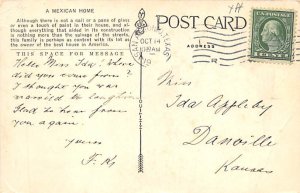 A MEXICAN HOME
Although there is not a nail or a pane of glass or even a touch of paint in their house, and although everything that aided in its construction is nothing more than the spinage of the streets, the family is perhaps as content with its lot as the owner of the best house in America.
THIS SPACE FOR MESSAGE
Hello Miss Ida, Where
did you come from?
I thought you was
married
Glad to hear from
you again.
yours
POST CARD
OCT 14
AM
ADDRESS
Miss
Ida Appleby
Danville
Kansas